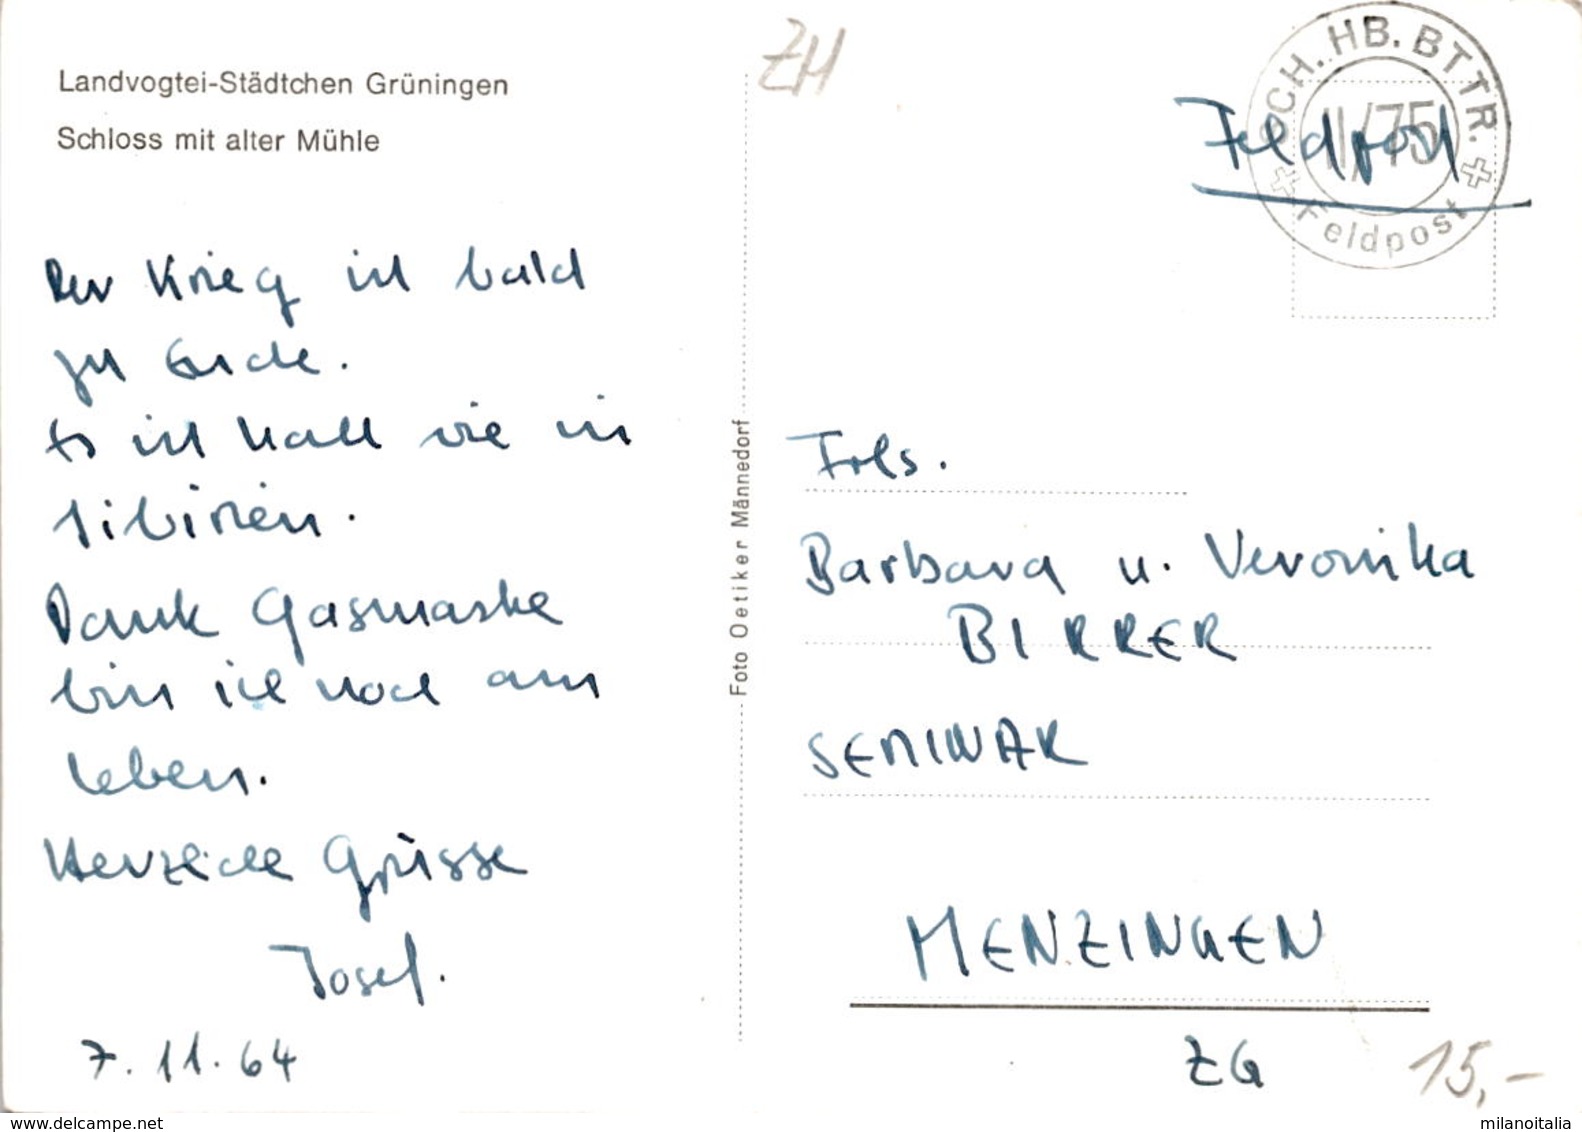 Landvogtei-Städtchen Grüningen
Schloss mit alter Mühle
Der Krieg ist bald
zu Ende.
Es ist kalt wie in
Sibirien.
Dank Gasmaske
bin ich noch am
leben.
Herzliche Grüsse
Josef.
7.11.64
Foto Oetiker Männedorf
ZH
SCH. HB. BTTR.
II/75
Feldpost
Feldpost
Frls.
Barbara u. Veronika
BIRRER
SEMINAR
MENZINGEN
ZG
15,-
www.delcampe.net
milanoitalia